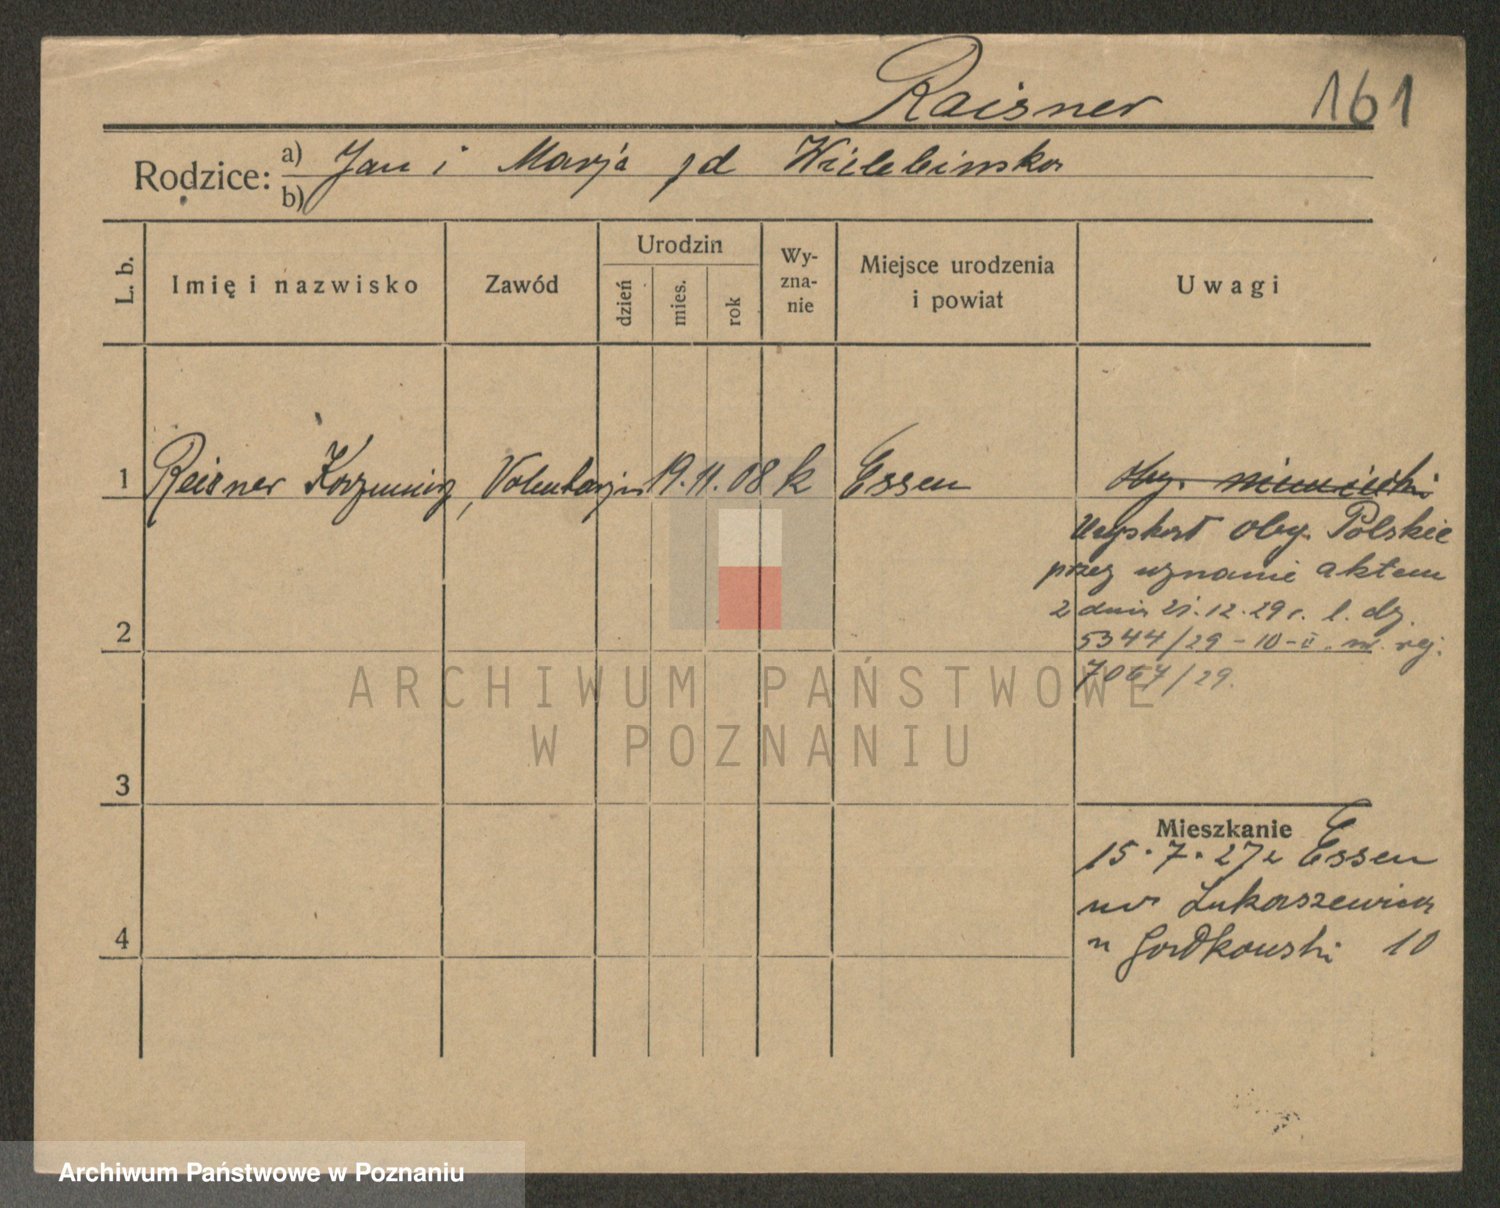 Raisner 161
Rodzice: a) Jan i Marja zd Wielebinska
b)
L. b.
Imię i nazwisko
Zawód
Urodzin
dzień
mies.
rok
Wy-
zna-
nie
Miejsce urodzenia
i powiat
Uwagi
1 Reisner Kazimierz, 19. 11. 08 k Essen oby. niemiecki
Uzyskał oby. Polskie
przez uznanie aktem
z dnia 21.12.29 r. l. dz.
5344/29-10- nr. rej.
29.
2
3
4
Mieszkanie
15.7.27 z Essen
Łukaszewicza
u 10
ARCHIWUM PAŃSTWOWE
W POZNANIU
Archiwum Państwowe w Poznaniu